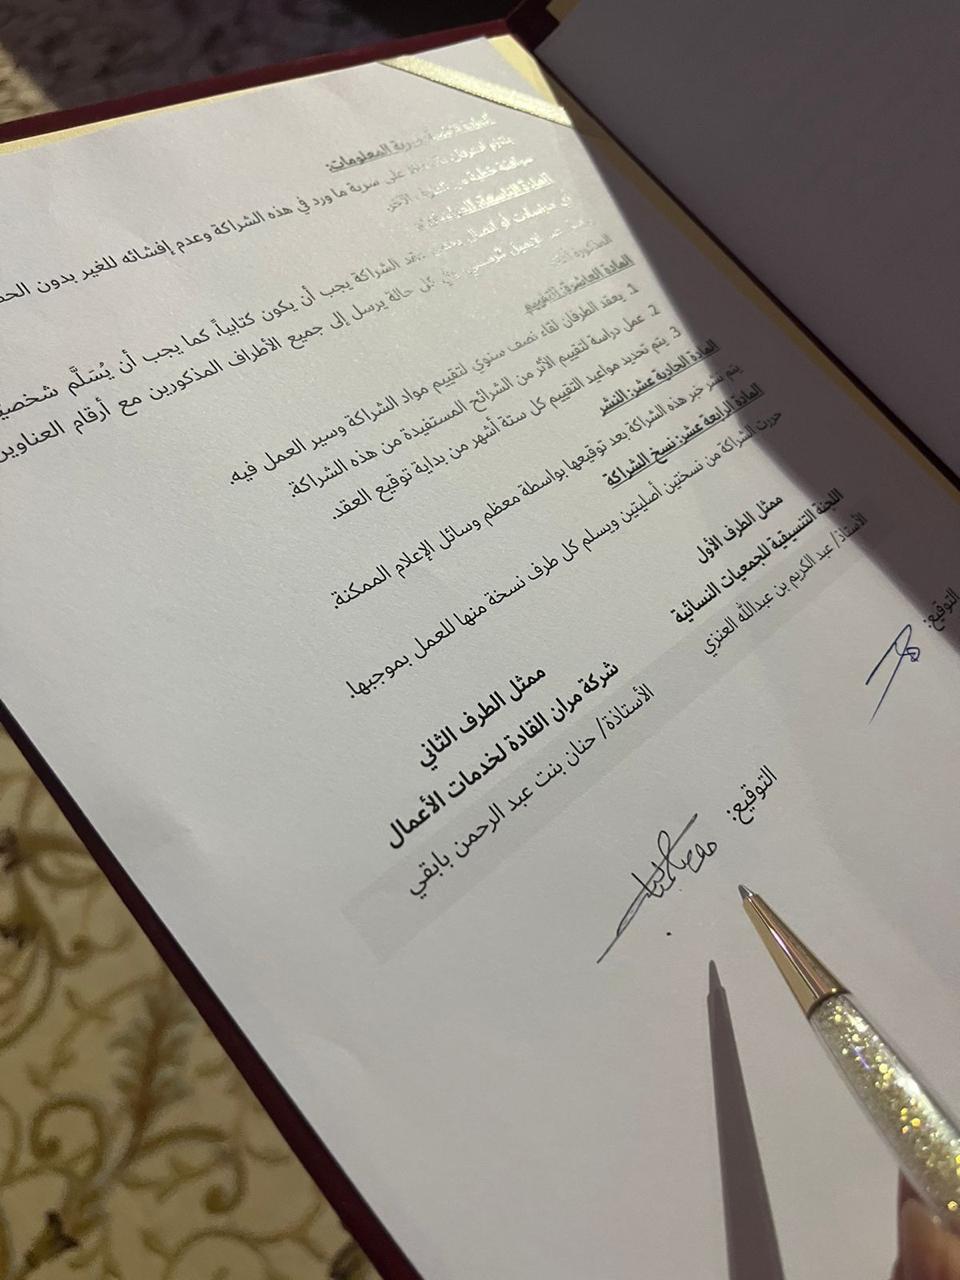 المادة الثامنة: سرية المعلومات:
يلتزم الطرفان على سرية ما ورد في هذه الشراكة وعدم إفشائه للغير بدون
موافقة خطية من الطرف الآخر.
المادة التاسعة:
أي مراسلات أو اتصال يتعلق بهذه الشراكة يجب أن يكون كتابياً، كما يجب أن يُسَلَّم
الإيميل الرسمي وفي كل حالة يرسل إلى جميع الأطراف المذكورين مع أرقام العناوين
المذكورة
المادة العاشرة: التقييم
1. يعقد الطرفان لقاء نصف سنوي لتقييم مواد الشراكة وسير العمل فيه.
2. عمل دراسة لتقييم الأثر من الشرائح المستفيدة من هذه الشراكة.
3. يتم تحديد مواعيد التقييم كل ستة أشهر من بداية توقيع العقد.
المادة الحادية عشر: النشر
يتم نشر خبر هذه الشراكة بعد توقيعها بواسطة معظم وسائل الإعلام الممكنة.
المادة الرابعة عشر: نسخ الشراكة
حررت الشراكة من نسختين أصليتين ويسلم كل طرف نسخة منها للعمل بموجبها.
ممثل الطرف الأول
اللجنة التنسيقية للجمعيات النسائية
الأستاذ/ عبد الكريم بن عبدالله العنزي
التوقيع:
ممثل الطرف الثاني
شركة مران القادة لخدمات الأعمال
الأستاذة/ حنان بنت عبد الرحمن بابقي
التوقيع: